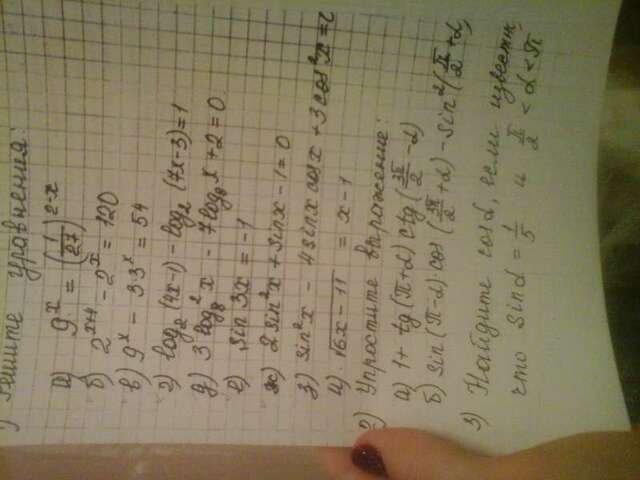 1) Решите уравнения:
а) 9^x = (1/27)^{2-x}
б) 2^{x+4} - 2^x = 120
в) 9^x - 33^x = 54
г) log_2 (4x-1) - log_2 (7x-3) = 1
д) 3 log_8^2 x - 7 log_8 x + 2 = 0
е) sin 3x = -1
ж) 2 sin^2 x + sin x - 1 = 0
з) sin^2 x - 4 sin x cos x + 3 cos^2 x = 0
и) √6x - 11 = x - 1
2) Упростите выражение:
а) 1 + tg (π+α) ctg (3π/2 - α)
б) sin (π-α) cos (3π/2 + α) - sin^2 (π/2 + α)
3) Найдите cos α, если известн.
что sin α = 1/5 и π/2 < α < π